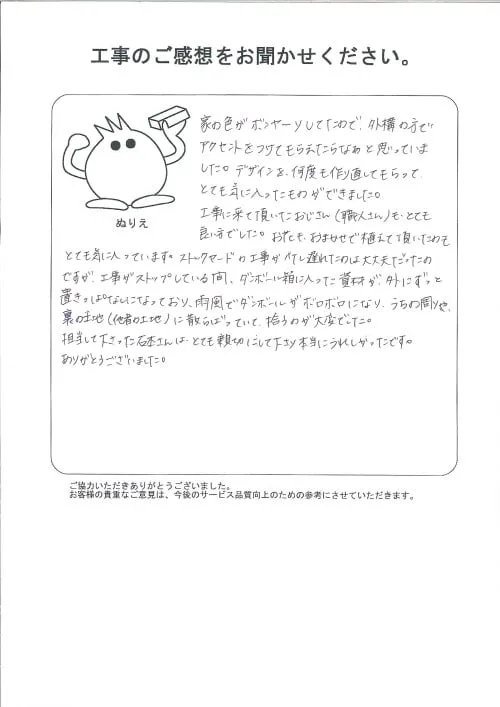 工事のご感想をお聞かせください。
家の色がボンヤーリしてたので、外構の方で
アクセントをつけてもらえたらなぁと思っていま
した。デザインを、何度も作り直してもらって、
とても気に入ったものができました。
工事に来て頂いたおじさん(職人さん)も、とても
良い方でした。お花も、おまかせで植えて頂いたのも
ぬりえ
とても気に入っています。ストックヤードの工事が遅れたのは大丈夫だったの
ですが、工事がストップしている間、ダンボール箱に入った資材が、外にずっと
置きっぱなしになっており、雨風でダンボールがボロボロになり、うちの周りや、
裏の土地(他者の土地)に散らばっていて、拾うのが大変でした。
担当して下さった石本さんは、とても親切にして下さり本当にうれしかったです。
ありがとうございました。
ご協力いただきありがとうございました。
お客様の貴重なご意見は、今後のサービス品質向上のための参考にさせていただきます。